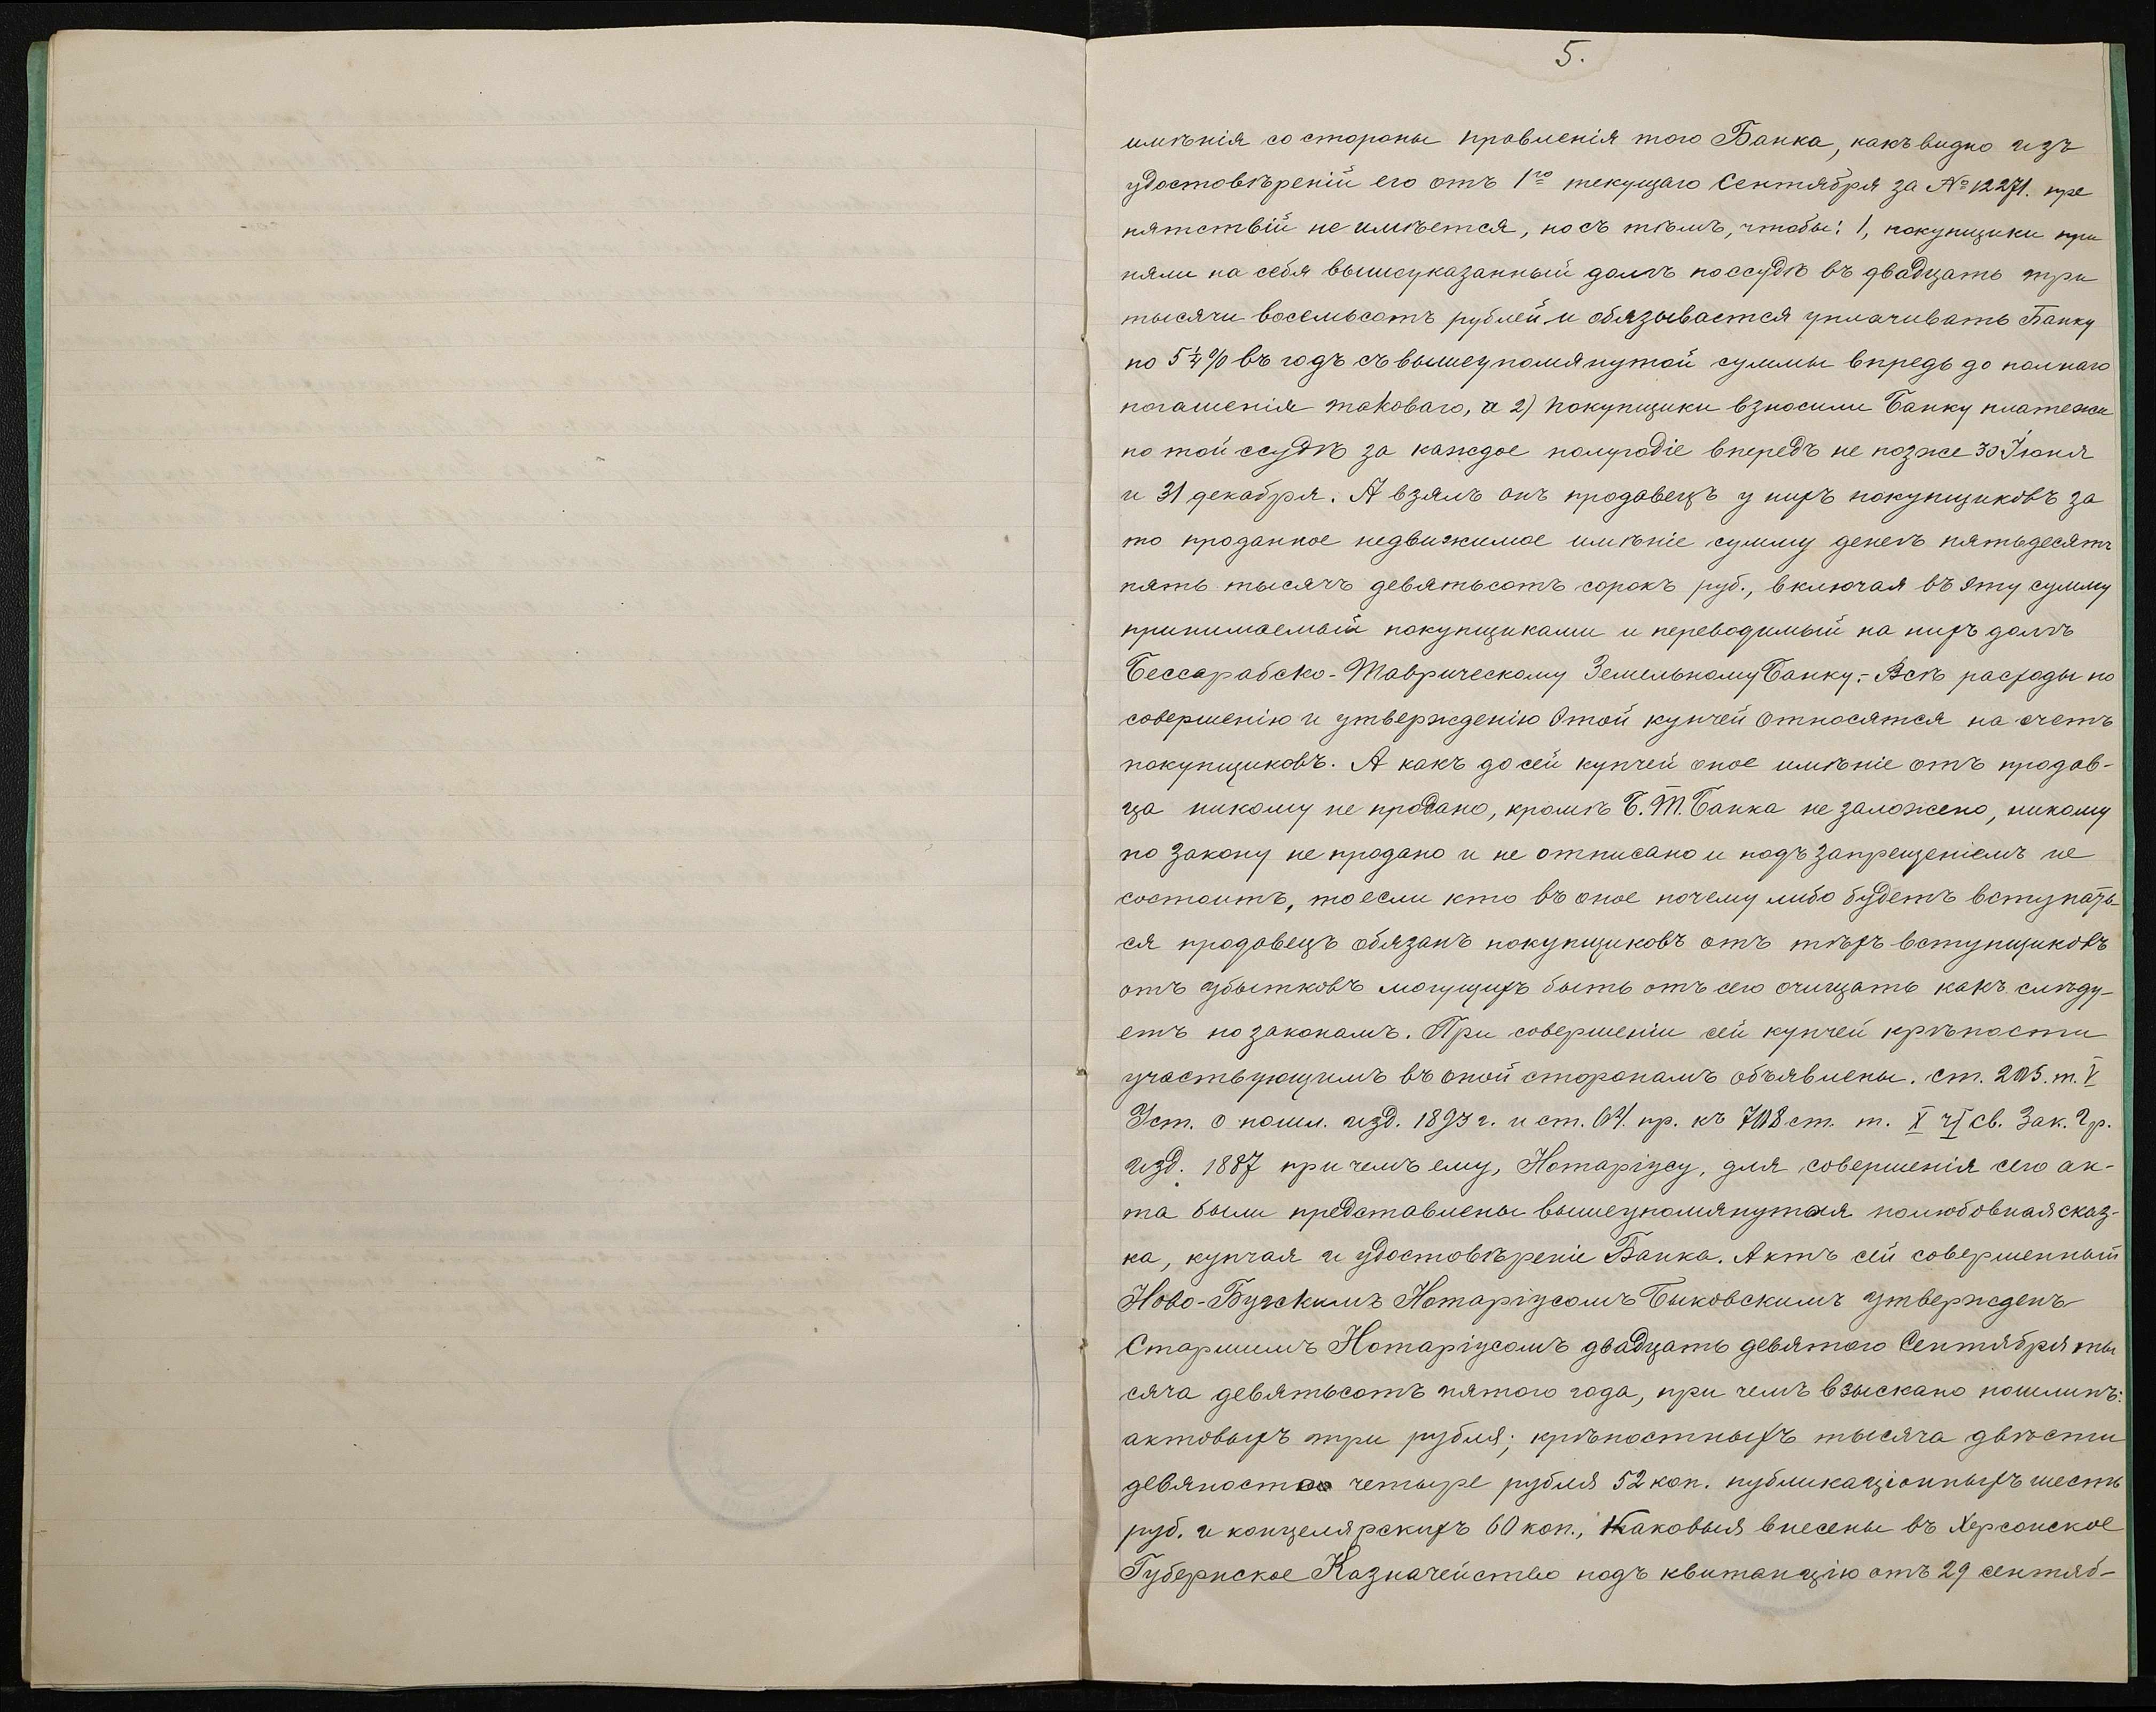 5.
имѣнія со стороны правленія того Банка, какъ видно изъ
удостовѣреній его отъ 1го текущаго Сентября за № 12271. пре
пятствій не имѣется, но съ тѣмъ, чтобы: 1, покупщики при
няли на себя вышеуказанный долгъ по ссудѣ въ двадцать три
тысячи восемьсотъ рублей и обязывается уплачивать Банку
по 5¼% въ годъ съ вышеупомянутой суммы впредь до полнаго
погашенія таковаго, а 2) покупщики взносили Банку платежи
по той ссудѣ за каждое полугодіе впередъ не позже 30 Іюня
и 31 декабря. А взялъ онъ продавецъ у нихъ покупщиковъ за
то проданное недвижимое имѣніе сумму денегъ пятьдесятъ
пять тысячъ девятьсотъ сорокъ руб., включая въ эту сумму
принимаемый покупщиками и переводимый на нихъ долгъ
Бессарабско-Таврическому Земельному Банку. - Всѣ расходы по
совершенію и утвержденію этой купчей относятся на счетъ
покупщиковъ. А какъ до сей купчей оное имѣніе отъ продав-
ца никому не продано, кромѣ Б. Т. Банка не заложено, никому
по закону не продано и не отписано и подъ запрещеніемъ не
состоитъ, то если кто въ оное почему либо будетъ вступать-
ся продавецъ обязанъ покупщиковъ отъ тѣхъ вступщиковъ
отъ убытковъ могущихъ быть отъ сего очищать какъ слѣду-
етъ по законамъ. При совершеніи сей купчей крѣпости
участвующимъ въ оной сторонамъ объявлены. ст. 205. т. V
Уст. о пошл. изд. 1893 г. и ст. пр. къ 708 ст. т. X ч I Св. Зак. Гр.
изд. 1887 при чемъ ему, Нотаріусу, для совершенія сего ак-
та были представлены вышеупомянутая полюбовная сказ-
ка, купчая и удостовѣреніе Банка. Актъ сей совершенный
Ново-Бугскимъ Нотаріусомъ Быковскимъ утвержденъ
Старшимъ Нотаріусомъ двадцать девятого Сентября ты
сяча девятьсотъ пятого года, при чемъ взыскано пошлинъ:
актовыхъ три рубля; крѣпостныхъ тысяча двѣсти
девяносто четыре рубля 52 коп. публикаціонныхъ шесть
руб. и канцелярскихъ 60 коп., каковыя внесены въ Херсонское
Губернское Казначейство подъ квитанцію отъ 29 сентяб-